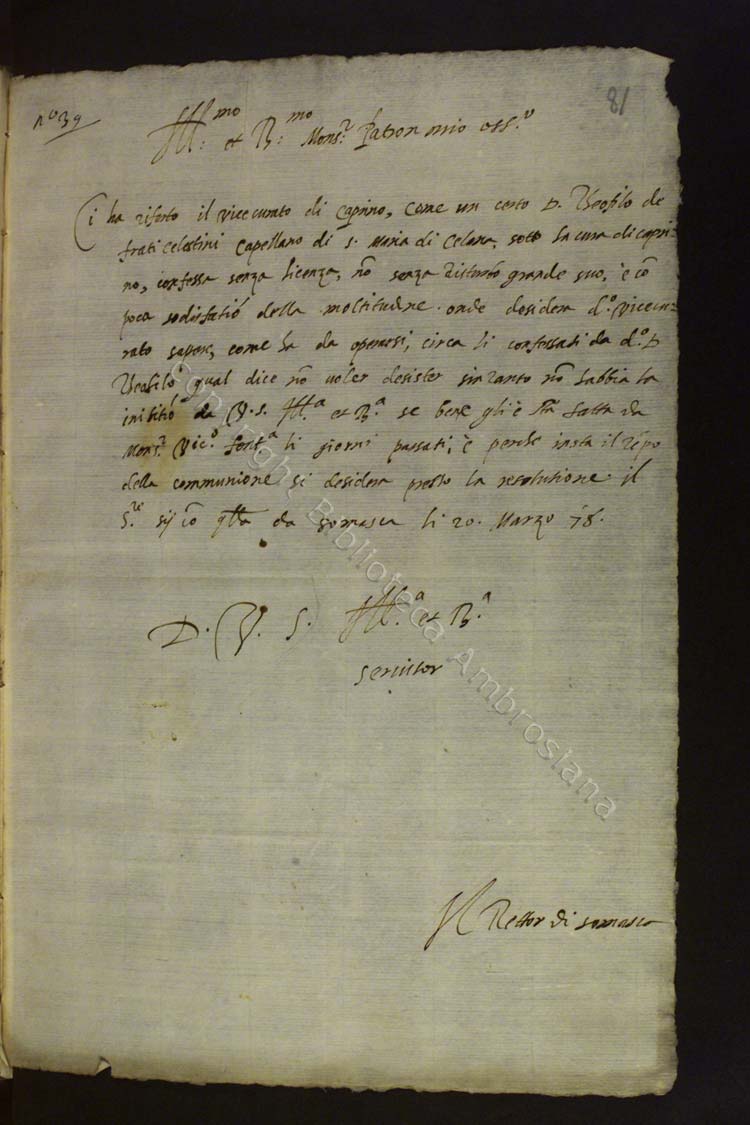 n.o 39
81
Ill:mo et R:mo Mons.r Patron mio oss.o
Ci ha riferto il vicecurato di Caprino, come un certo D. Teofilo de
frati celestini Capellano di S. Maria di Celana, sotto la cura di Capri-
no, confessa senza licenza, nõ senza disturbo grande suo, è cõ
poca sodisfatiõ della moltitudne. onde desidera d.o vicecu-
rato saper, come ha da operarsi, circa li confessati da d.o D
Teofilo qual dice nõ voler desister sin tanto nõ habbia la
inibitiõ da V. S. Ill.a et R.a se bene gli è sta fatta da
Mons.r Vic.o for.a li giorni passati, è perche insta il tẽpo
della communione si desidera presto la resolutione. il
S.re sij cõ q̃lla da Somasca li 20. Marzo 78.
D. V. S. Ill.a et R.a
servitor
Il Rettor di somasca
Copyright Biblioteca Ambrosiana